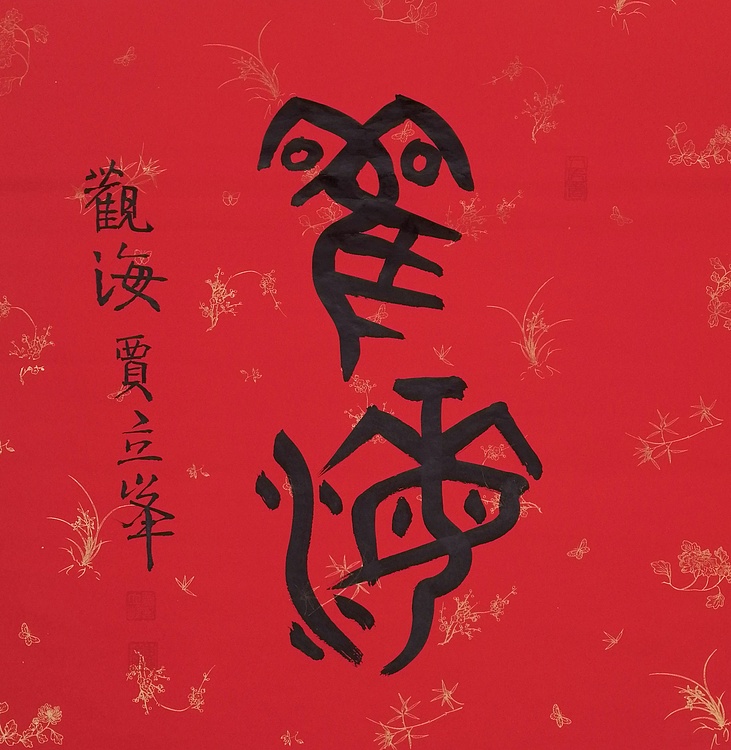 觀海
觀海 賈立峯